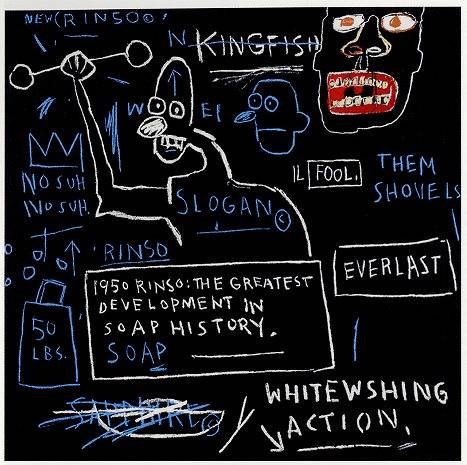 NEW(RINSO©)
N
KINGFISH
W E
NO SUH
NO SUH
SLOGAN©
IL FOOL.
THEM
SHOVELS
RINSO
1950 RINSO: THE GREATEST
DEVELOPMENT IN
SOAP HISTORY.
SOAP
EVERLAST
50
LBS.
WHITEWSHING
ACTION.